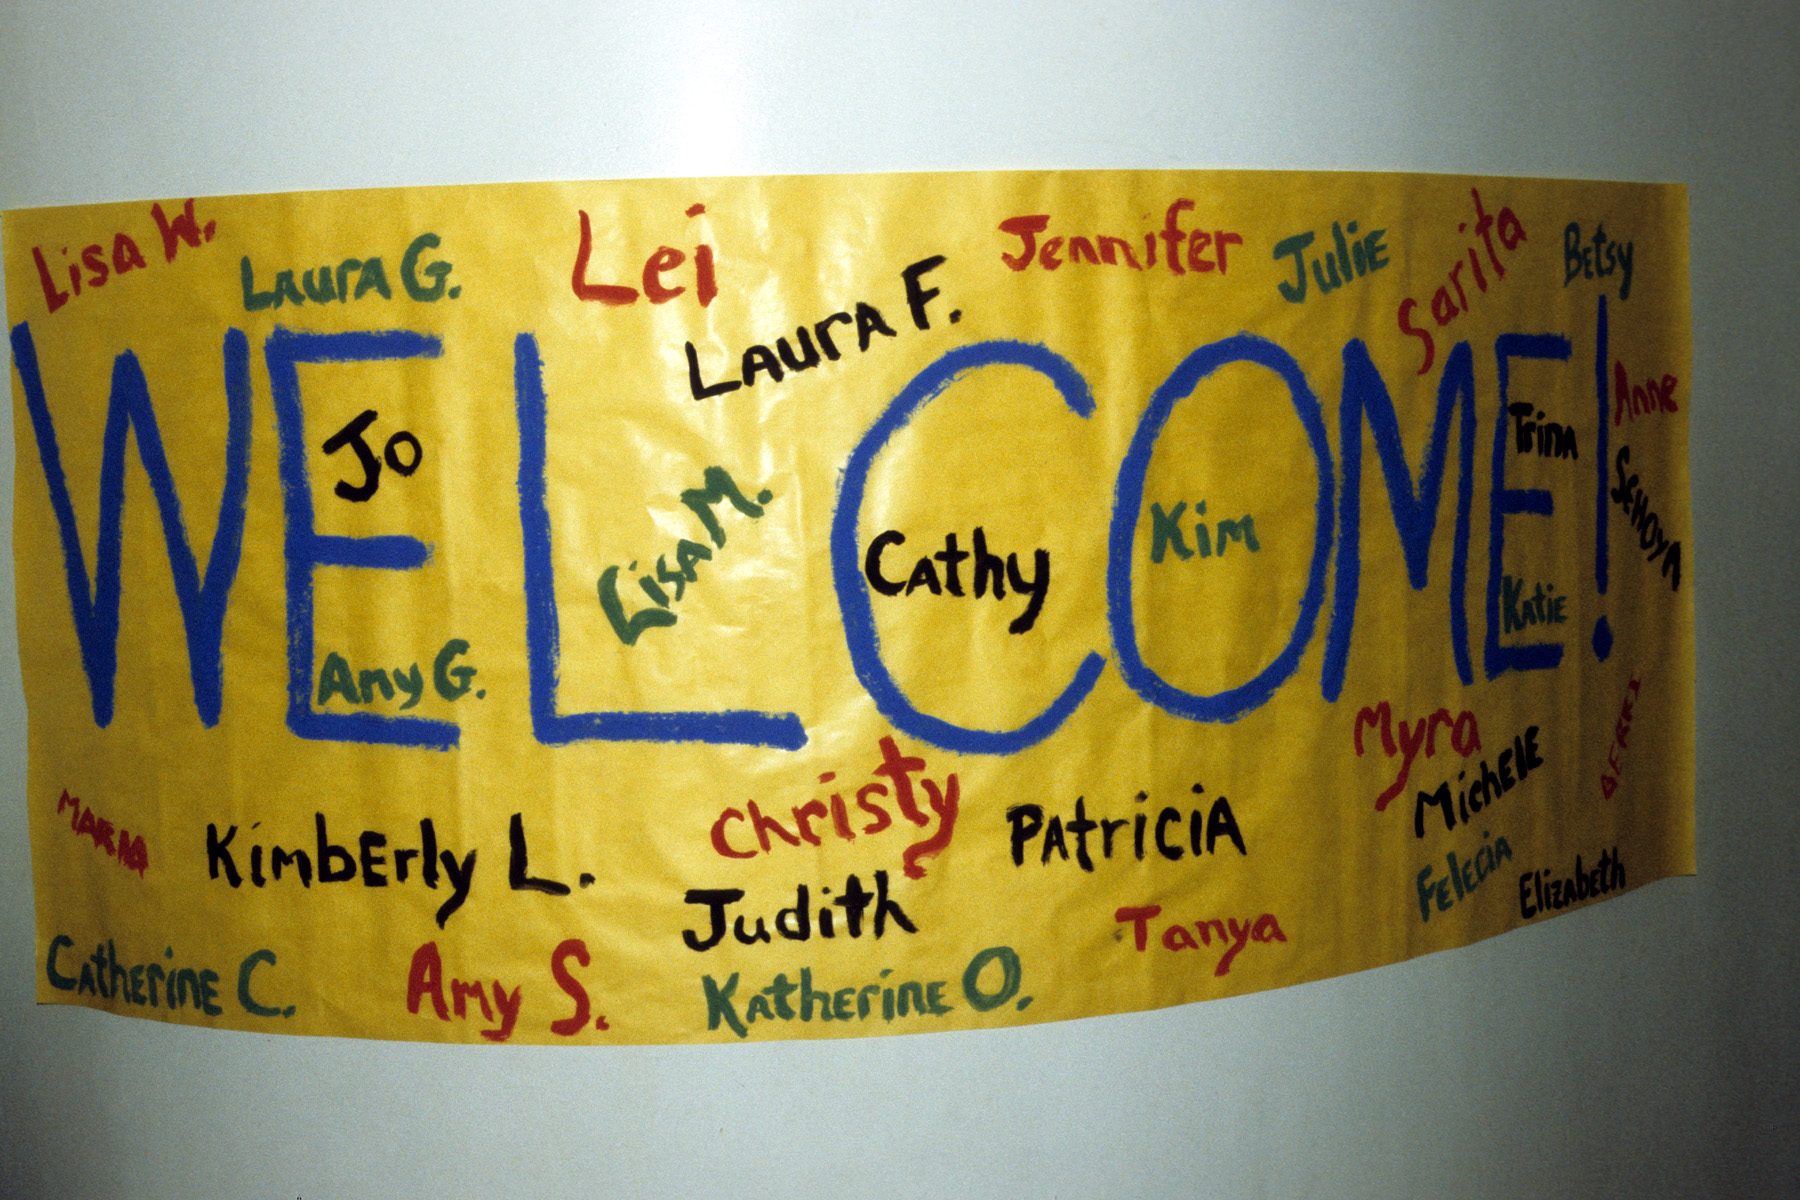 Lisa W.
Laura G.
Lei
Laura F.
Jennifer
Julie
Sarita
Betsy
WELCOME!
Jo
Amy G.
Lisa M.
Cathy
Kim
Trina
Katie
Anne
Sehoya
Maria
Kimberly L.
Christy
Judith
Patricia
Myra
Michele
Felecia
Elizabeth
Derri
Catherine C.
Amy S.
Katherine O.
Tanya